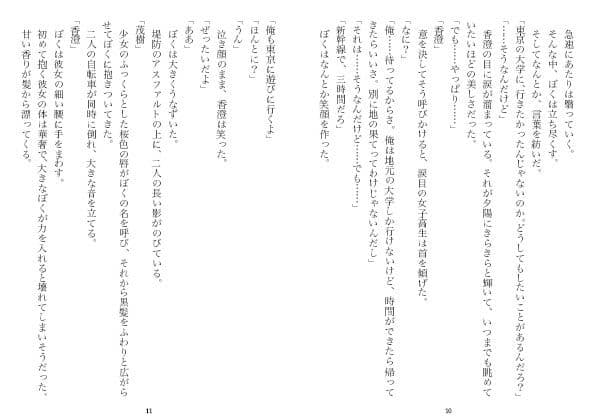 急速にあたりは翳っていく。
そんな中、ぼくは立ち尽くす。
そしてなんとか、言葉を紡いだ。
「東京の大学に行きたかったんじゃないのか。どうしてもしたいことがあるんだろ？」
「……そうなんだけど」
香澄の目に涙が溜まっている。それが夕陽にきらきらと輝いて、いつまでも眺めて
いたいほどの美しさだった。
「でも……やっぱり……」
「香澄」
意を決してそう呼びかけると、涙目の女子高生は首を傾げた。
「なに？」
「俺……待ってるからさ。俺は地元の大学しか行けないけど、時間ができたら帰って
きたらいいさ。別に地の果てってわけじゃないんだし」
「それは……そうなんだけど……でも……」
「新幹線で、三時間だろ」
ぼくはなんとか笑顔を作った。
10
「俺も東京に遊びに行くよ」
「ほんとに？」
「うん」
泣き顔のまま、香澄は笑った。
「ぜったいだよ」
「ああ」
ぼくは大きくうなずいた。
堤防のアスファルトの上に、二人の長い影がのびている。
「茂樹」
少女のふっくらとした桜色の唇がぼくの名を呼び、それから黒髪をふわりと広がら
せてぼくに抱きついてきた。
二人の自転車が同時に倒れ、大きな音を立てる。
「香澄」
ぼくは彼女の細い腰に手をまわす。
初めて抱く彼女の体は華奢で、大きなぼくが力を入れると壊れてしまいそうだった。
甘い香りが髪から漂ってくる。
11